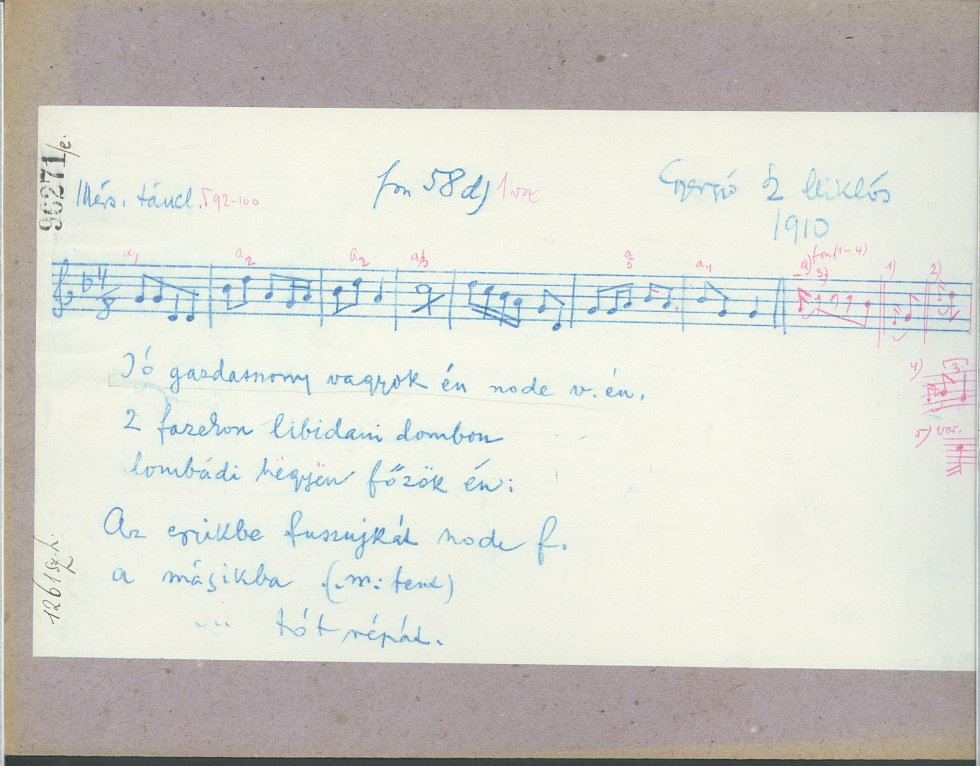 90271/e.
Mérs. táncl. 92-100
fon 58 d) 1 vsz
Gyergyó Sz Miklós
1910
a1 a2 a2 a3 a5 a4 a) fon (1-4)
3) 1) 2)
Jó gazdasszony vagyok én node v. én.
4) 3
2 fazekon libidani dombon
5) var.
lombádi hëgyën főzök én:
Az egyikbe fuszujkát node f.
a másikba (.m: fent)
... tót répát.
1261